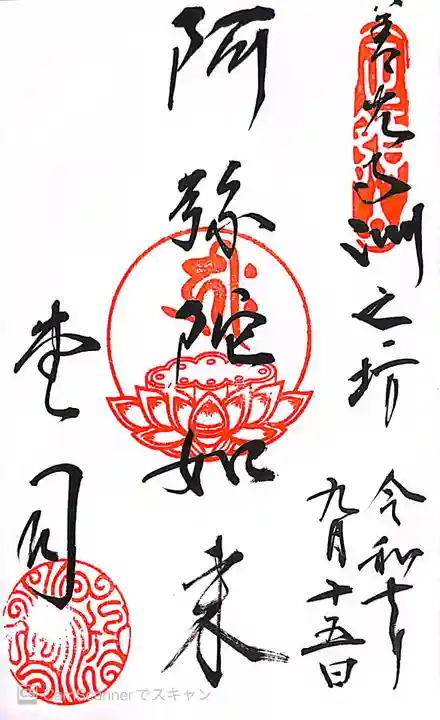 善光寺淵之坊
令和
九月十五日
阿弥陀如来
堂司
CS CamScannerでスキャン